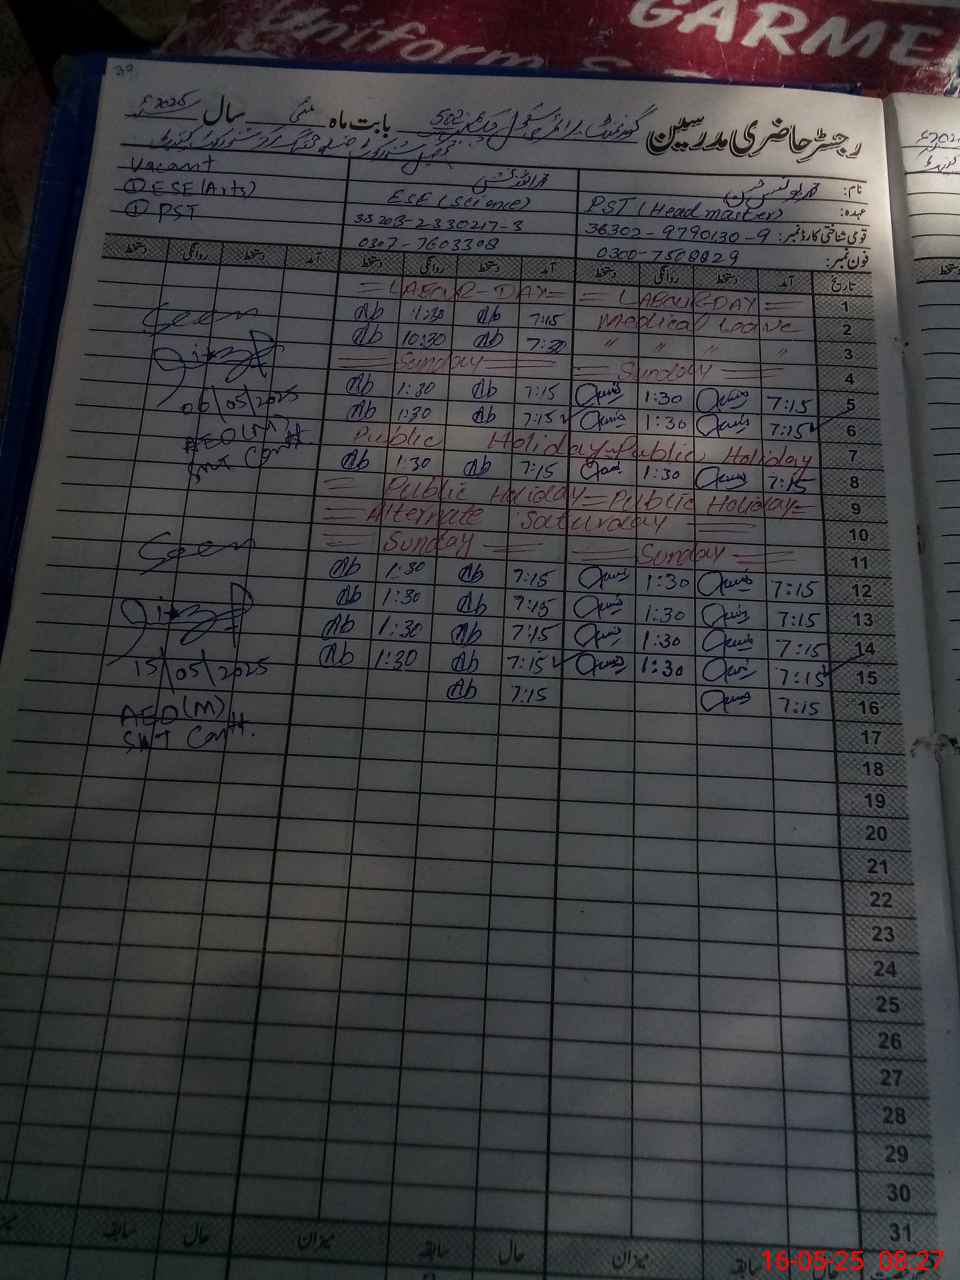 GARME
Uniform &
39
رجسٹر حاضری مدرسین گورنمنٹ پرائمری سکول بابت ماہ مئی سال 2025ء
Vacant
نام:
① ESE (Arts) ESE (Science) PST (Head master) عہدہ:
① PST 33203-2330217-3 36302-9790130-9 قومی شناختی کارڈ نمبر:
0307-7603308 0300-7508829 فون نمبر:
تاریخ آمد دستخط روانگی دستخط آمد دستخط روانگی دستخط آمد دستخط روانگی دستخط
= LABOUR-DAY = = LABOUR DAY = 1
Ab 1:30 Ab 7:15 Medical Leave 2
Ab 10:30 Ab 7:30 " " " " 3
Sunday Sunday 4
Ab 1:30 Ab 7:15 1:30 7:15 5
Ab 1:30 Ab 7:15 1:30 7:15 6
Public Holiday Public Holiday 7
Ab 1:30 Ab 7:15 1:30 7:15 8
= Public Holiday = Public Holiday = 9
= Alternate Saturday = 10
= Sunday = = Sunday = 11
Ab 1:30 Ab 7:15 1:30 7:15 12
Ab 1:30 Ab 7:15 1:30 7:15 13
Ab 1:30 Ab 7:15 1:30 7:15 14
Ab 1:30 Ab 7:15 1:30 7:15 15
Ab 7:15 7:15 16
17
18
19
20
21
22
23
24
25
26
27
28
29
30
31
Seen
06/05/2025
AEO(M)
Seen
15/05/2025
AEO(M)
حال سابقہ میزان حال سابقہ میزان حال سابقہ
16-05-25 08:27